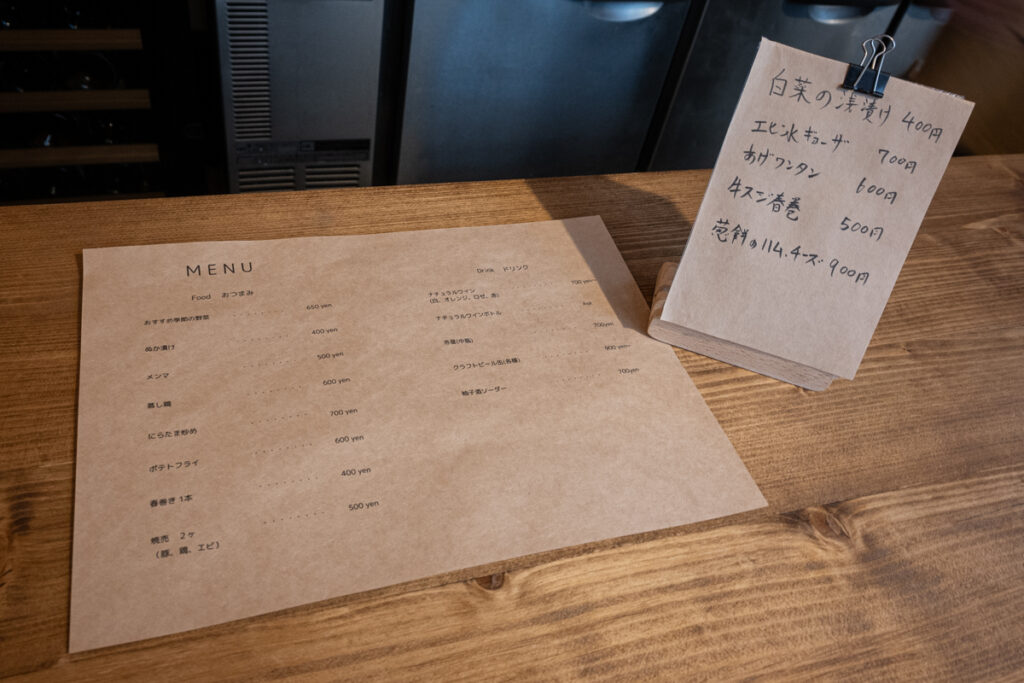 MENU
Food おつまみ
おすすめ季節の野菜 650 yen
ぬか漬け 400 yen
メンマ 500 yen
蒸し鶏 600 yen
にらたま炒め 700 yen
ポテトフライ 600 yen
春巻き 1本 400 yen
焼売 2ヶ 500 yen
(豚、鶏、エビ)
Drink ドリンク
ナチュラルワイン 700 yen~
(白、オレンジ、ロゼ、赤)
ナチュラルワインボトル Ask
赤星(中瓶) 700yen
クラフトビール缶(各種) 900 yen~
柚子蜜ソーダー 700yen
白菜の浅漬け 400円
エビ水ギョーザ 700円
あげワンタン 600円
牛スジ春巻 500円
葱餅のハム、チーズ 900円